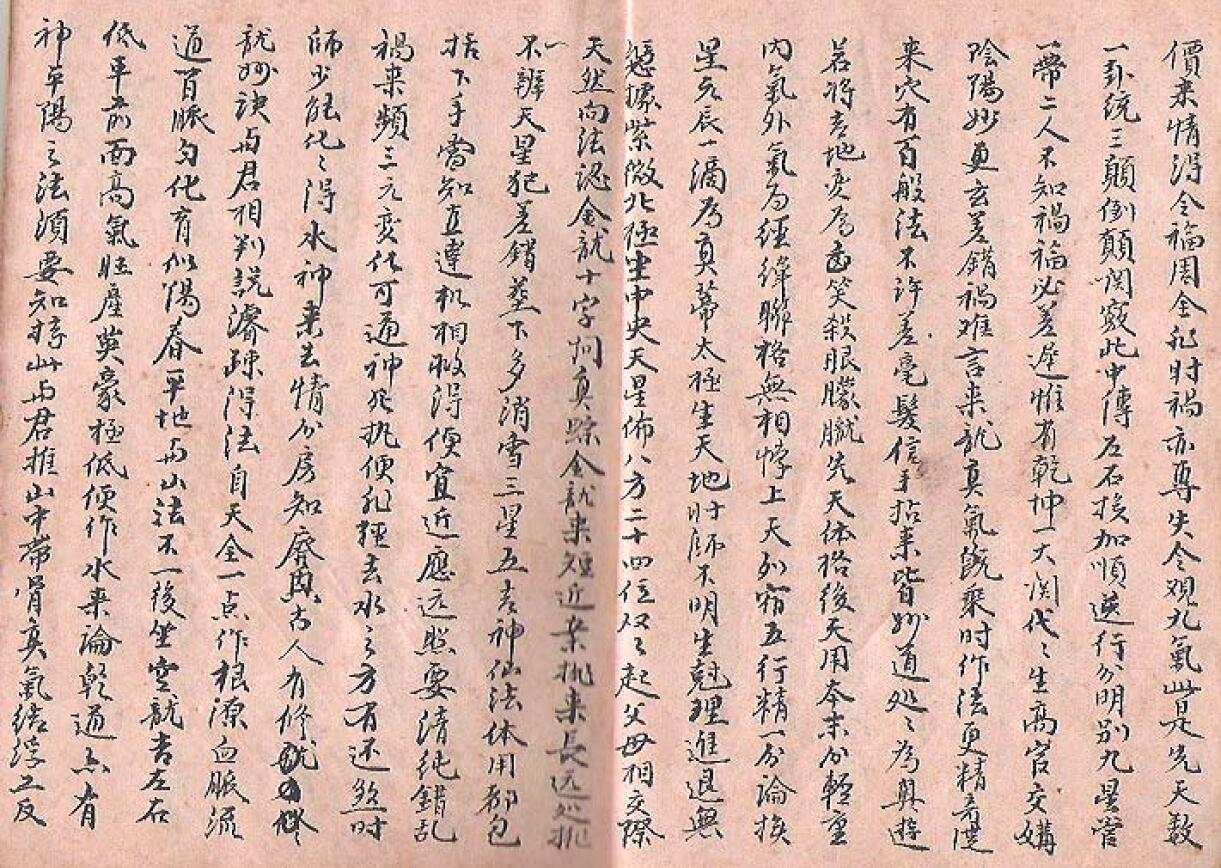 價来情得令福周全死时禍亦尊失令观九氣此是先天数
一卦统三顛倒顛闰竅此中傳左右挨加順逆行分明别九星當
一帶二人不知禍福必差遲惟有乾坤一大闰代々生高官交媾
陰陽妙更玄差錯禍难言来龍真氣既聚时作法更精奇從
来穴有百般法不许差毫髮信手拈来皆妙道处々為真遊
若将吉地变為凶笑殺眼朦朧先天体格後天用本末分輕重
内氣外氣為經緯聯格無相悖上天列宿五行精一分論挨
星元辰一滴為真蒂太極生天地时師不明生尅理進退無
憑據紫微北極生中央天星佈八方二十四位位々起父母相交際
天然向法認金龍十字问真踪金龍来短近来挑来長远处挑
不辨天星犯差錯墓下多消雪三星五吉神仙法体用都包
括下手需知直達机相救得便宜近應远照要清纯錯乱
禍来頻三元变化可通神死执便死煙去水之方有还然时
師少能化々得水神来去情分房知廢興古人有修龍
龍妙訣与君相判説濬疎得法自天全一点作根源血脈流
通百脈匀化育似陽春平地与山法不一後坐空龍吉左右
低平前面高氣旺產英豪極低便作水来論乾通点有
神平陽之法須要知掙此与君推山中帶骨真氣結浮土反